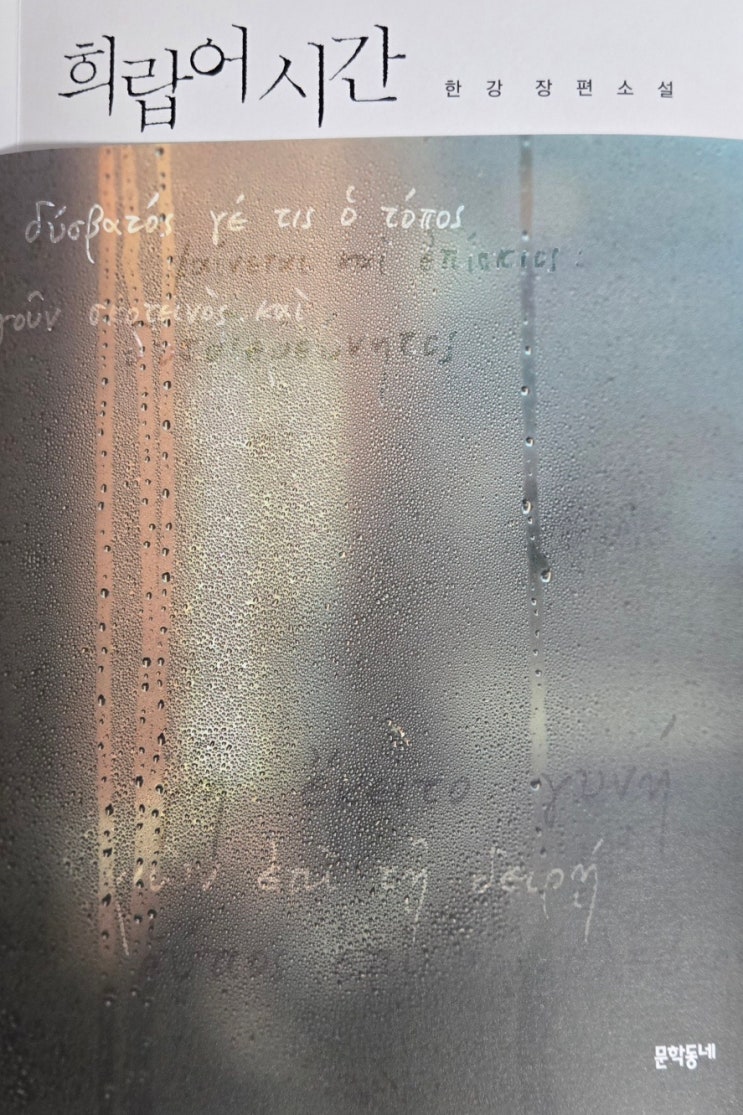 희랍어 시간
한강 장편소설
δύσβατός γέ τις ὁ τόπος
φαίνεται καὶ ἐπίσκιος
γοῦν σκοτεινὸς καὶ
γυνή
ἐπὶ τῇ δειρῇ
문학동네